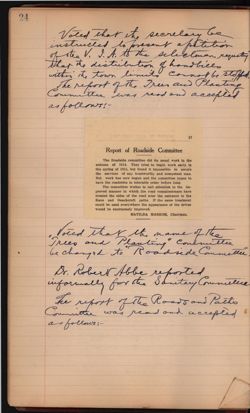 24
Voted that the secretary be
instructed to present a petition
of the V. I. A. to the selectmen requesting
that the distribution of handbills
within the town limits cannot be stopped
The report of the Trees and Planting
Committee was read and accepted
as follows:-
Report of Roadside Committee
The Roadside committee did its usual work in the
autumn of 1914. They tried to begin work early in
the spring of 1915, but found it impossible to secure
the services of any trustworthy and competent man.
but work was now begun and the committee hopes to
have the roadsides in tolerable order before long.
The committee wishes to call attention to the im-
proved manner in which the road commissioners have
treated the sides of the road near the entrance to the
Kane and Gamecock paths. If the same treatment
could be used everywhere the appearance of the drives
would be enormously improved.
MATILDA MARKOE, Chairman.
Voted that the name of the
"Trees and Planting" Committee
be changed to "Roadside Committee"
Dr. Robert Abbe reported
informally for the Sanitary Committee
The report of the Roads and Paths
Committee was read and accepted
as follows:-